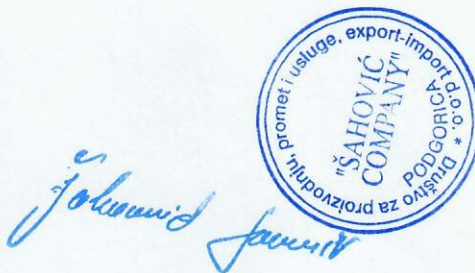 * Društvo za proizvodnju, promet i usluge, export-import d.o.o.
"ŠAHOVIĆ
COMPANY"
PODGORICA